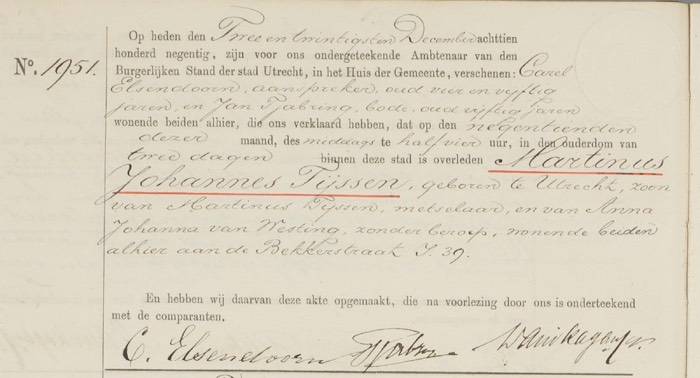 Op heden den Twee en twintigsten December achttien
honderd negentig, zijn voor ons ondergeteekende Ambtenaar van den
Nº. 1951.
Burgerlijken Stand der stad Utrecht, in het Huis der Gemeente, verschenen: Carel
Elsendoorn, aanspreker, oud vier en vijftig
jaren, en Jan Tjabring, bode, oud vijftig jaren
wonende beiden alhier, die ons verklaard hebben, dat op den negentienden
dezer maand, des middags te half vier uur, in den ouderdom van
twee dagen binnen deze stad is overleden Martinus
Johannes Tijssen, geboren te Utrecht, zoon
van Martinus Tijssen, metselaar, en van Anna
Johanna van Westing, zonder beroep, wonende beiden
alhier aan de Bekkerstraat I. 39.
En hebben wij daarvan deze akte opgemaakt, die na voorlezing door ons is onderteekend
met de comparanten.
C. Elsendoorn